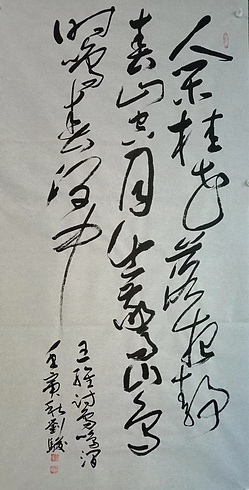 人闲桂花落夜静
春山空月出惊山鸟
时鸣春涧中
王维诗鸟鸣涧
壬寅秋劉駿